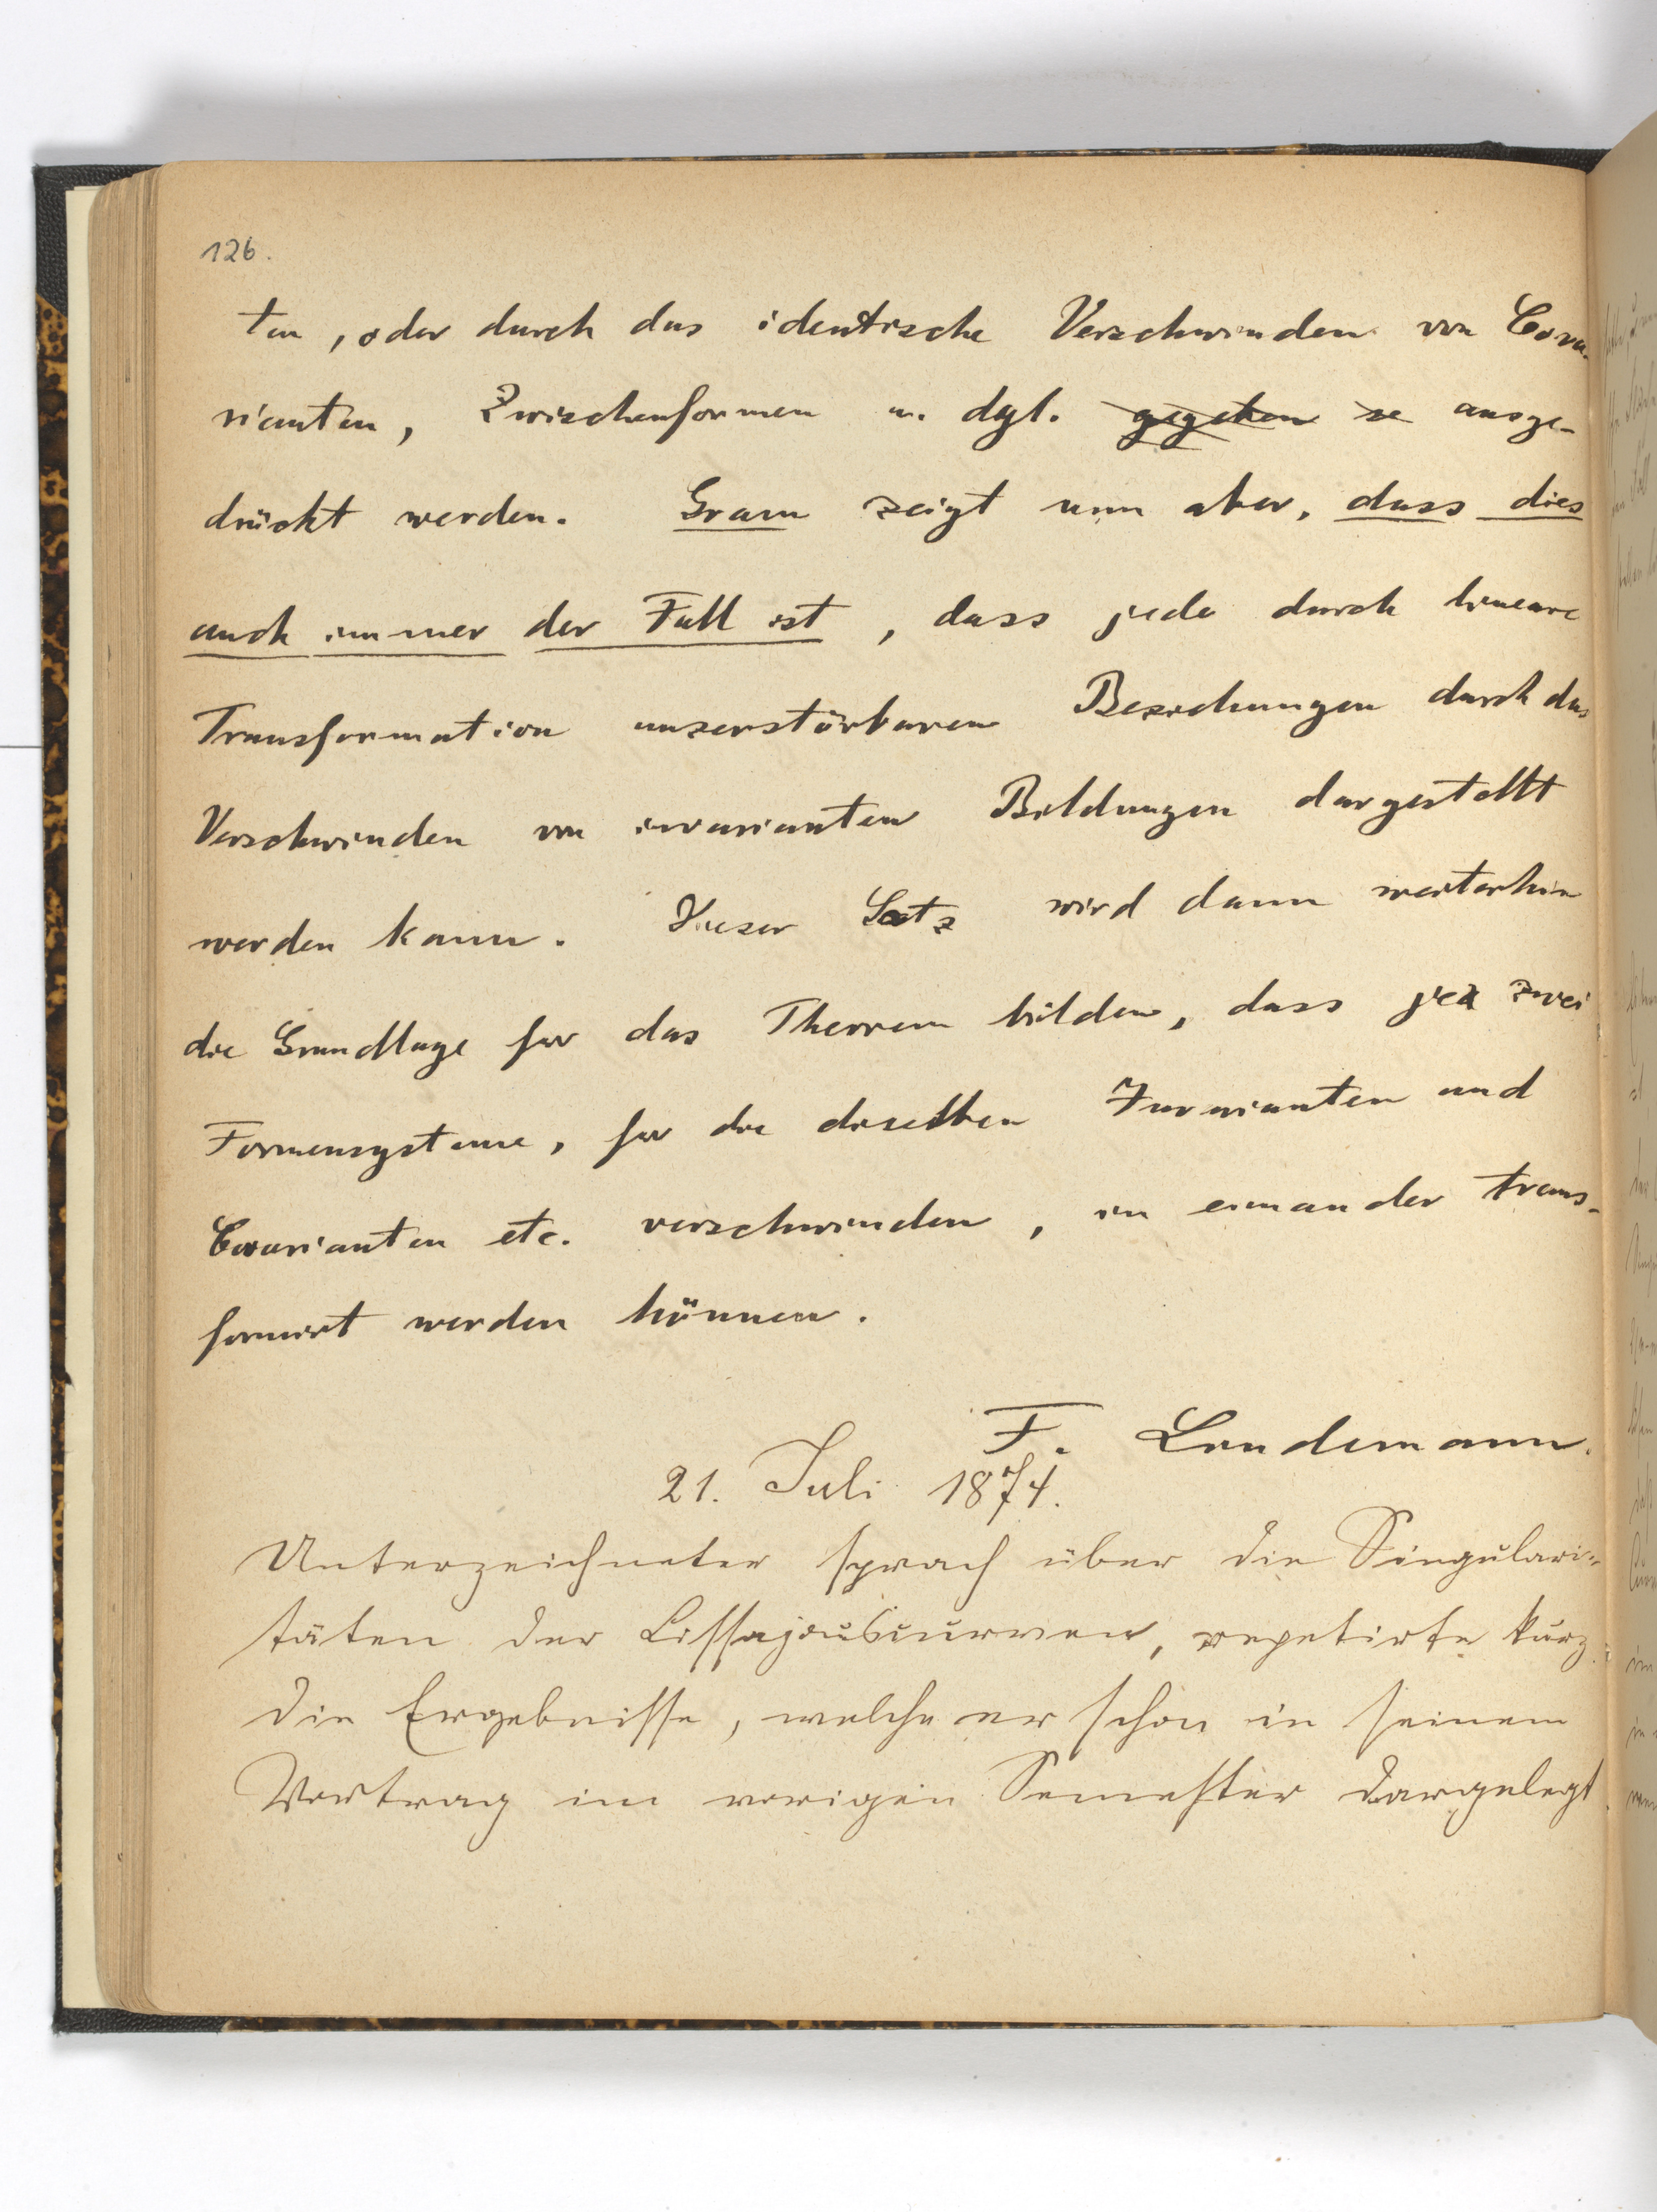 126.
ten, oder durch das identische Verschwinden von Cova-
rianten, Zwischenformen u. dgl. gegeben se ausge-
drückt werden. Gram zeigt nun aber, dass dies
auch immer der Fall ist, dass jede durch lineare
Transformation unzerstörbaren Beziehungen durch das
Verschwinden von invarianten Bildungen dargestellt
werden kann. Dieser Satz wird dann weiterhin
die Grundlage für das Theorem bilden, dass je zwei
Formensysteme, für die dieselben Invarianten und
Covarianten etc. verschwinden, in einander trans-
formirt werden können.
F. Lindemann.
21. Juli 1874.
Unterzeichneter sprach über die Singulari-
täten der Lissajouscurven, repetirte kurz
die Ergebnisse, welche er schon in seinem
Vortrag im vorigen Semester dargelegt